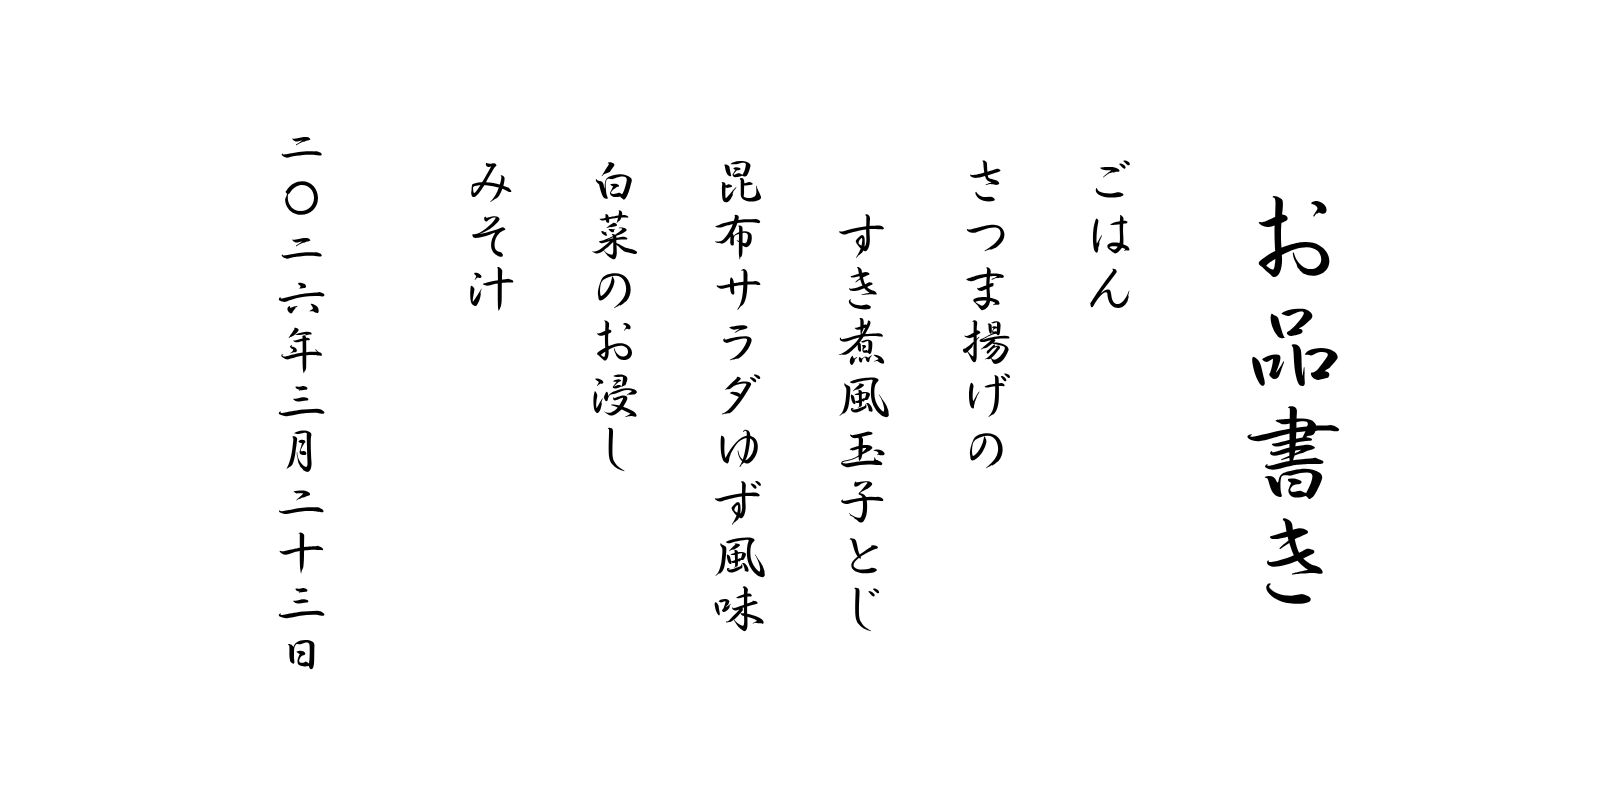 お品書き
ごはん
さつま揚げの
すき煮風玉子とじ
昆布サラダゆず風味
白菜のお浸し
みそ汁
二〇二六年三月二十三日